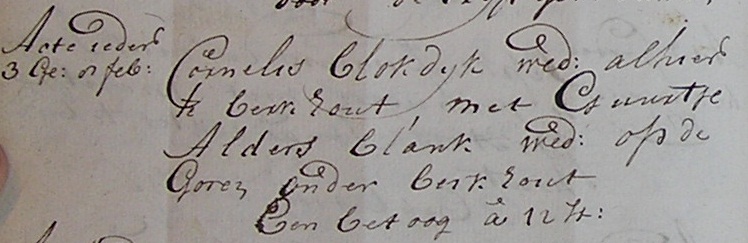 Acte ieder
3 Ge: en feb:
Cornelis Clokdyk wed: alhier
te berkhout, met Guurtje
Alders Clank wed: op de
Goren onder berkhout
Een betoog à 12 st: